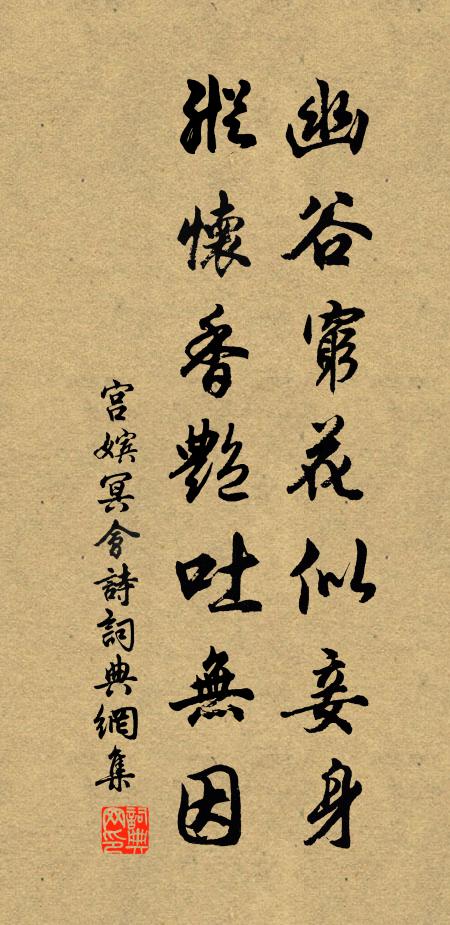 幽谷窮花似妾身
縱懷香艷吐無因
宮嬪冥會詩詞典網集
詞典网印